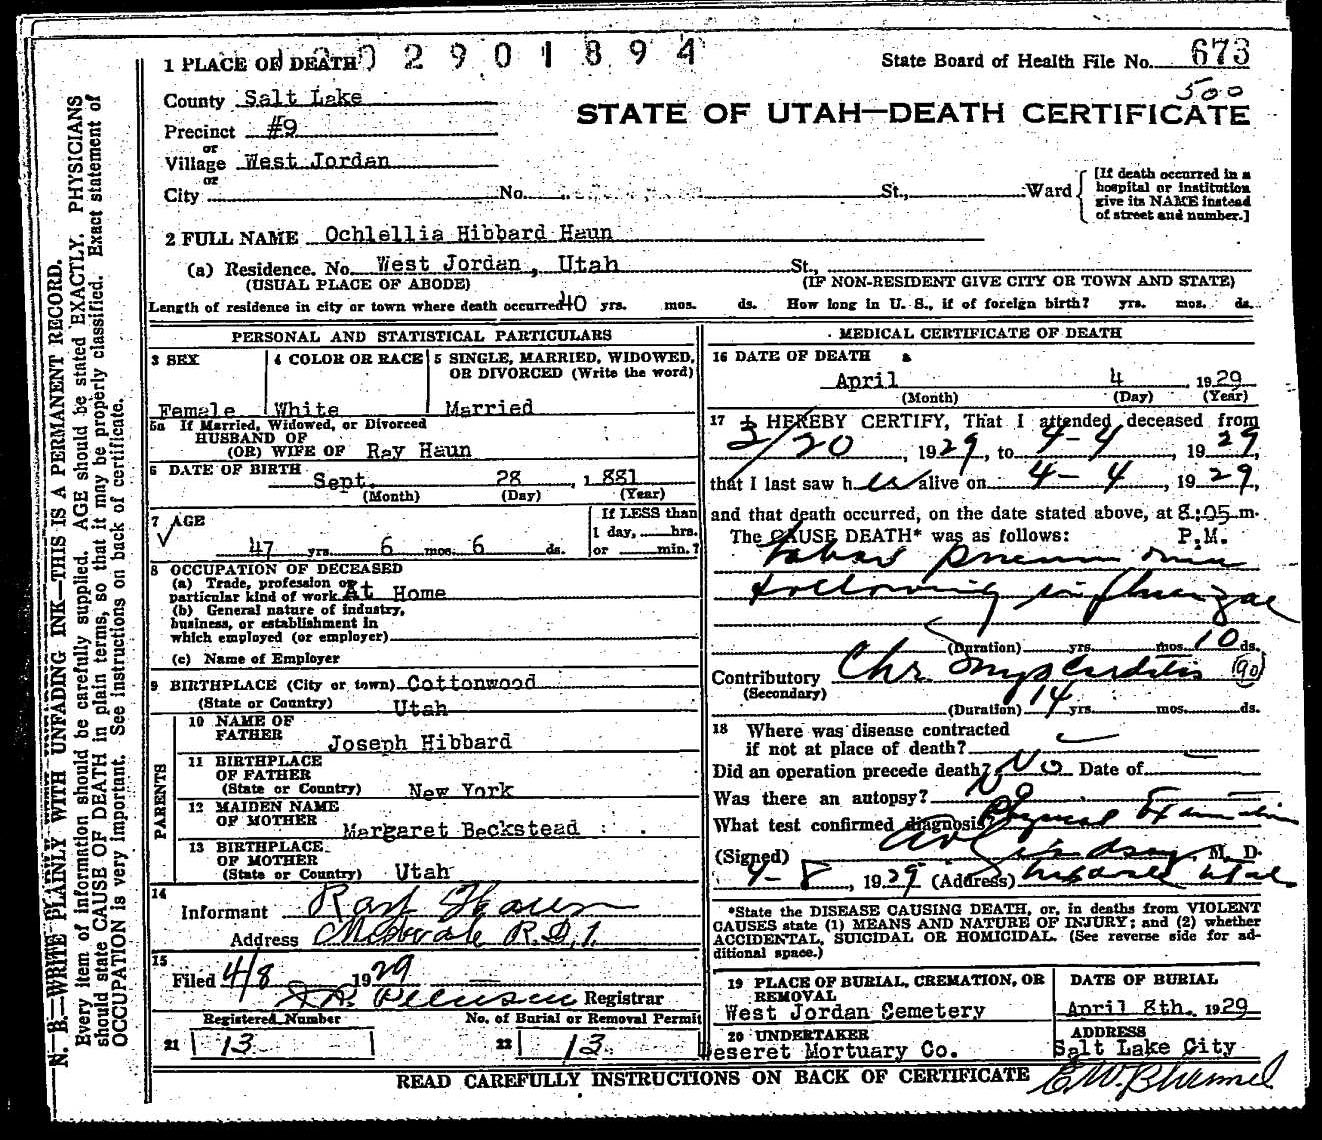 2902901894
State Board of Health File No. 673
500
1 PLACE OF DEATH
STATE OF UTAH—DEATH CERTIFICATE
County Salt Lake
Precinct #9
or
Village West Jordan
or
City No. St., Ward
[If death occurred in a
hospital or institution
give its NAME instead
of street and number.]
2 FULL NAME Ochlellia Hibbard Haun
(a) Residence. No. West Jordan, Utah St.,
(USUAL PLACE OF ABODE) (IF NON-RESIDENT GIVE CITY OR TOWN AND STATE)
Length of residence in city or town where death occurred 40 yrs. mos. ds. How long in U. S., if of foreign birth? yrs. mos. ds.
PERSONAL AND STATISTICAL PARTICULARS
3 SEX
Female
4 COLOR OR RACE
White
5 SINGLE, MARRIED, WIDOWED,
OR DIVORCED (Write the word)
Married
5a If Married, Widowed, or Divorced
HUSBAND OF
(OR) WIFE OF Ray Haun
6 DATE OF BIRTH
Sept. 28, 1881
(Month) (Day) (Year)
7 AGE
47 yrs. 6 mos. 6 ds.
If LESS than
1 day, hrs.
or min.?
8 OCCUPATION OF DECEASED
(a) Trade, profession or
particular kind of work At Home
(b) General nature of industry,
business, or establishment in
which employed (or employer)
(c) Name of Employer
9 BIRTHPLACE (City or town) Cottonwood
(State or Country) Utah
PARENTS
10 NAME OF
FATHER
Joseph Hibbard
11 BIRTHPLACE
OF FATHER
(State or Country) New York
12 MAIDEN NAME
OF MOTHER
Margaret Beckstead
13 BIRTHPLACE
OF MOTHER
(State or Country) Utah
14
Informant Ray Haun
Address Midvale R.D.1.
15
Filed 4/8 1929
Registrar
Registered Number
21 13
No. of Burial or Removal Permit
22 13
MEDICAL CERTIFICATE OF DEATH
16 DATE OF DEATH
April 4, 1929
(Month) (Day) (Year)
17 I HEREBY CERTIFY, That I attended deceased from
3/20, 1929, to 4-4, 1929,
that I last saw her alive on 4-4, 1929,
and that death occurred, on the date stated above, at 8:05 m.
The CAUSE DEATH* was as follows: P.M.
Lobar pneumonia
following influenzae
(Duration) yrs. mos. 10 ds.
Contributory Chr. Myocarditis (90)
(Secondary)
(Duration) 14 yrs. mos. ds.
18 Where was disease contracted
if not at place of death?
Did an operation precede death? No Date of
Was there an autopsy? No
What test confirmed diagnosis Physical Examination
(Signed) Lindsay, M. D.
4-8, 1929 (Address) Midvale Utah
*State the DISEASE CAUSING DEATH, or, in deaths from VIOLENT
CAUSES state (1) MEANS AND NATURE OF INJURY; and (2) whether
ACCIDENTAL, SUICIDAL OR HOMICIDAL. (See reverse side for ad-
ditional space.)
19 PLACE OF BURIAL, CREMATION, OR
REMOVAL
West Jordan Cemetery
DATE OF BURIAL
April 8th. 1929
20 UNDERTAKER
Deseret Mortuary Co.
ADDRESS
Salt Lake City
READ CAREFULLY INSTRUCTIONS ON BACK OF CERTIFICATE
N. B.—WRITE PLAINLY WITH UNFADING INK—THIS IS A PERMANENT RECORD.
Every item of information should be carefully supplied. AGE should be stated EXACTLY. PHYSICIANS
should state CAUSE OF DEATH in plain terms, so that it may be properly classified. Exact statement of
OCCUPATION is very important. See instructions on back of certificate.